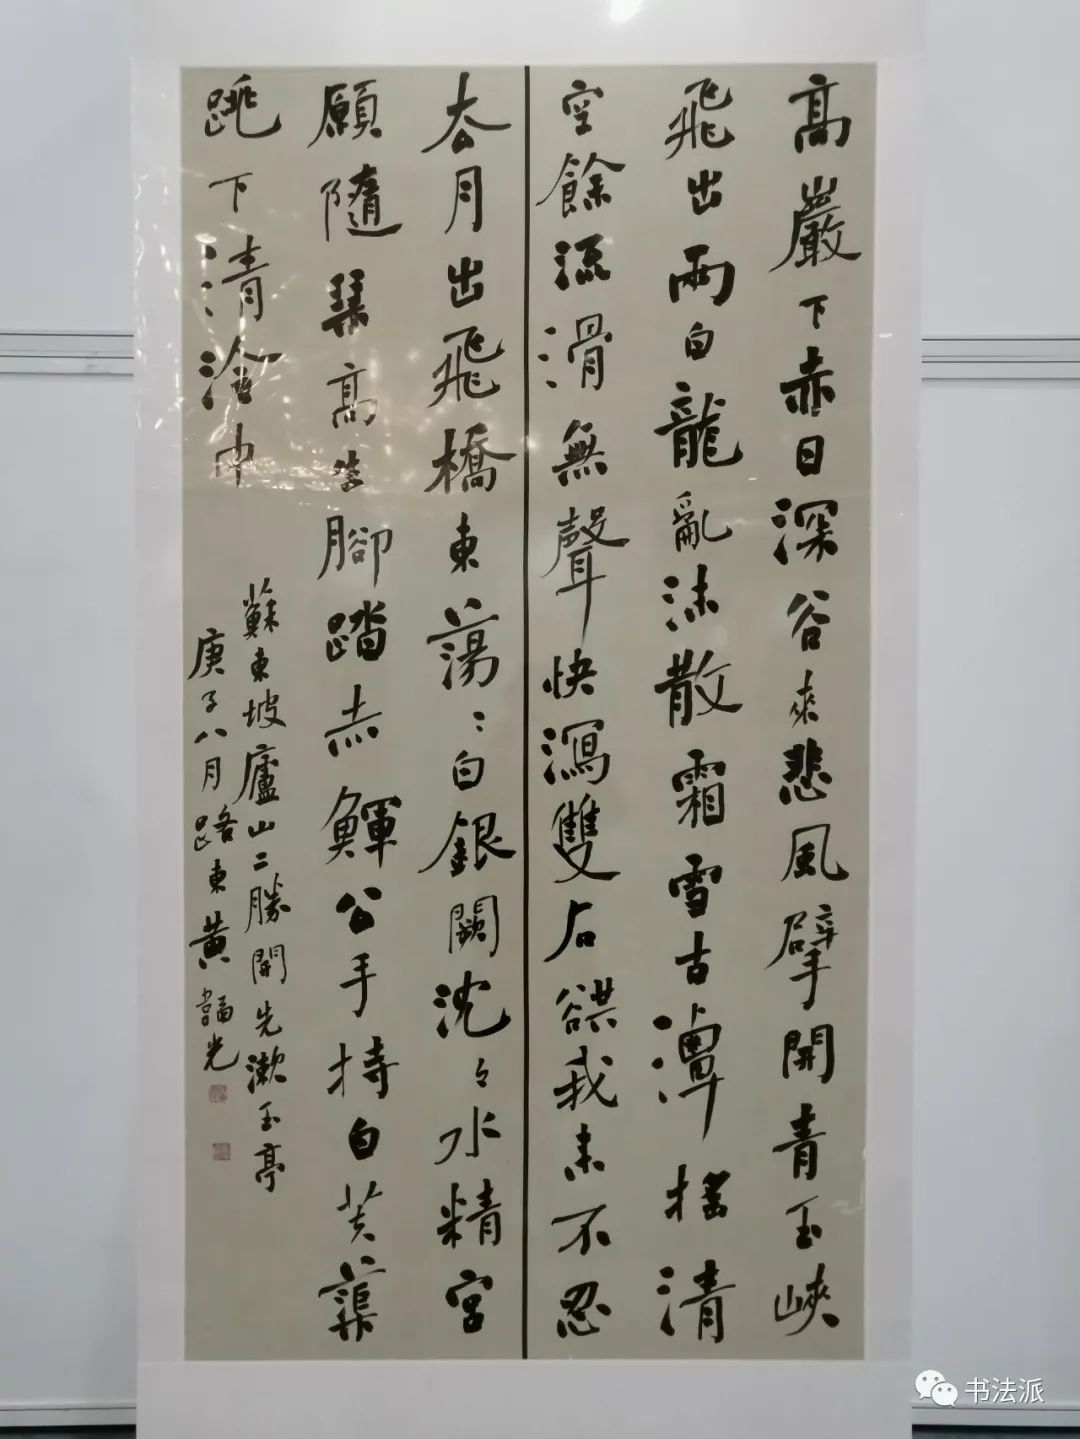 高巖下赤日深谷來悲風擘開青玉峽
飛出兩白龍亂沫散霜雪古潭搖清
空餘流滑無聲快瀉雙石谼我來不忍
去月出飛橋東蕩〻白銀闕沈々水精宮
願隨琴高生腳踏赤鯶公手持白芙蕖
跳下清泠中
蘇東坡廬山二勝開先漱玉亭
庚子八月路東黃書光
书法派